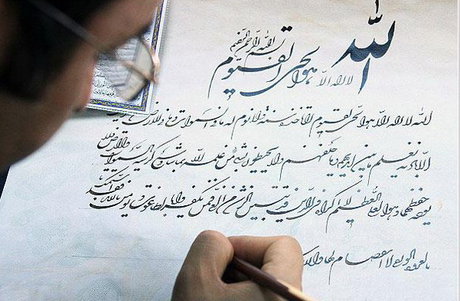 الله
لا اله الا هو الحی القیوم
الله لا اله الا هو الحی القیوم لا تاخذه سنة ولا نوم له ما فی السموات و ما فی الارض
الا باذنه یعلم ما بین ایدیهم و ما خلفهم ولا یحیطون بشئ من علمه الا بما شاء وسع کرسیه السموات والارض ولا
یؤده حفظهما وهو العلی العظیم لا اکراه فی الدین قد تبین الرشد من الغی فمن یکفر بالطاغوت ویؤمن بالله فقد استمسک
بالعروة الوثقی لا انفصام لها والله